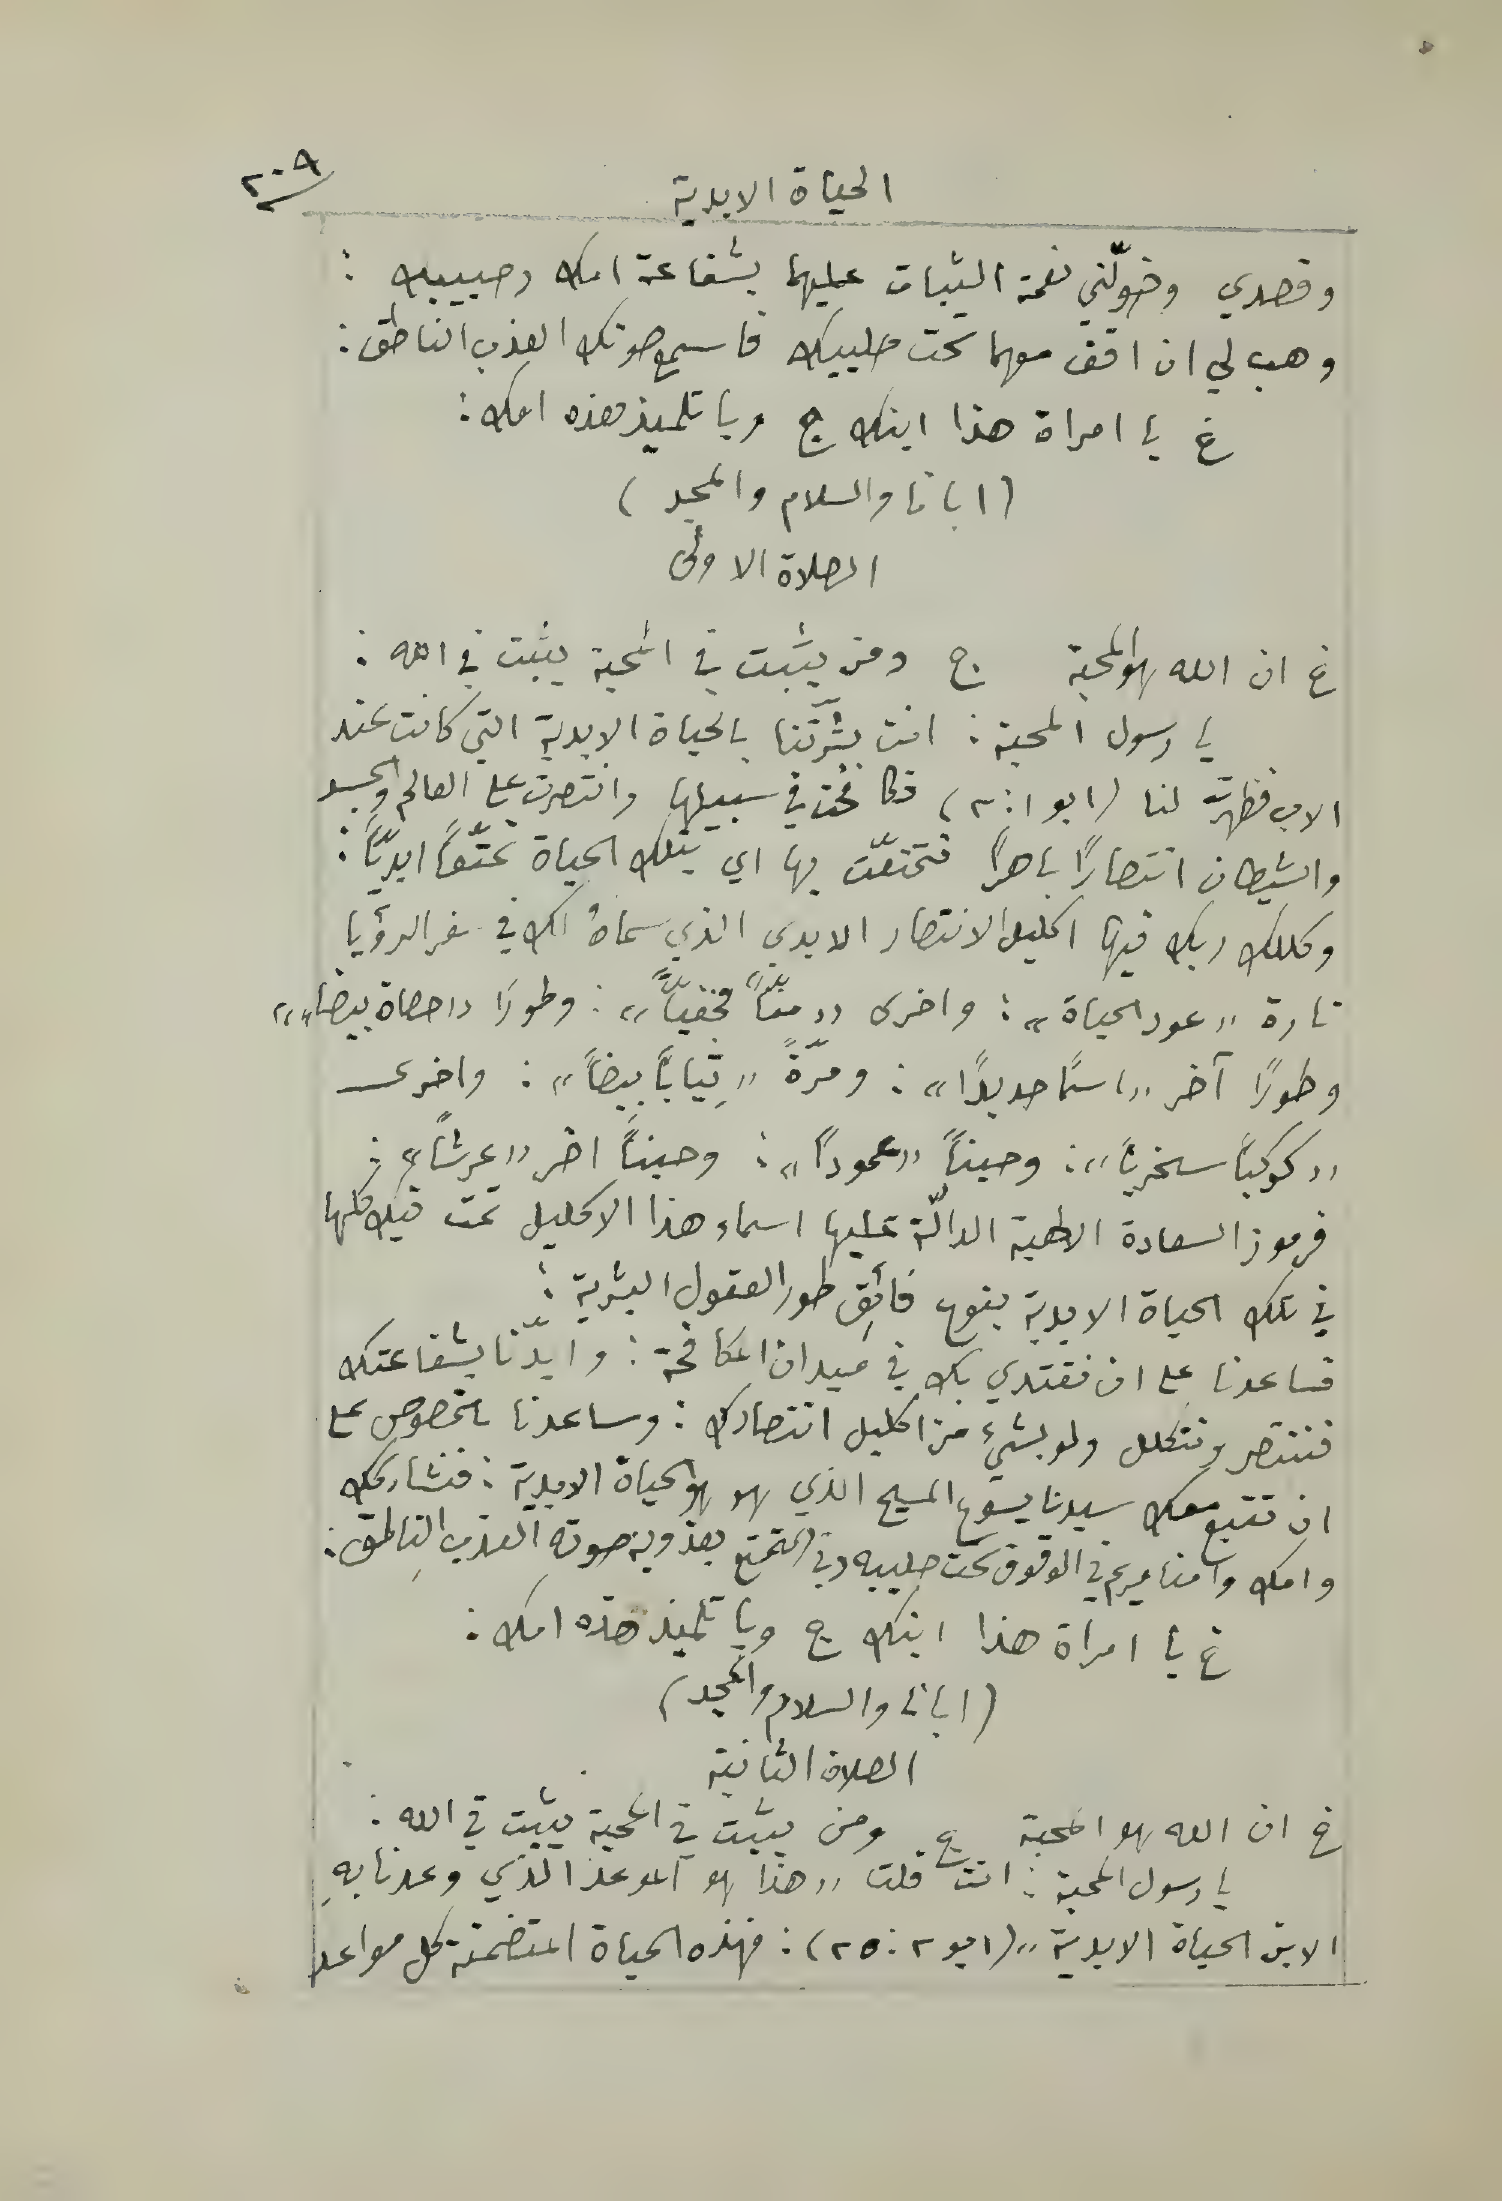 ٢٠٩
الحياة الابدية
وقصدي وخولّني نعمة الثبات عليهما بشفاعة امك وحبيبك :
وهب لي ان اقف معهما تحت صليبك فاسمع صوتك العذب الناطق :
غ يا امراة هذا ابنك ج ويا تلميذ هذه امك :
(ابانا والسلام والمجد)
الصلاة الاولى
غ ان الله هو المحبة ج ومن يثبت في المحبة يثبت في الله :
يا رسول المحبة : انت بشّرتنا بالحياة الابدية التي كانت عند
الاب فظهرت لنا (ايو ١ : ٢) فكافحت في سبيلها وانتصرت على العالم والجسد
والشيطان انتصارًا باهرًا فتمتعّت بها اي بتلك الحياة تمتّعاً ابديّاً :
وكللك ربك فيها اكليل الانتصار الابدي الذي سماهُ لك في سفر الرؤيا
تارة «عود الحياة» : واخرى «منّاً مخفيّاً» : وطورًا «حصاة بيضاء»
وطورًا آخر «اسمًا جديدًا» : ومرّةً «ثِياباً بيضاً» : واخرى
«كوكباً سحرياً» : وحيناً «عموداً» : وحيناً اخر «عرشاً» :
فرموز السعادة الالهية الدالّة عليها اسماء هذا الاكليل تمت فيك كلها
في تلك الحياة الابدية بنوع فائق طور العقول البشرية :
فساعدنا على ان نقتدي بك في ميدان المكافحة : وايدّنا بشفاعتك
فننتصر ونتكلل ولو بشيء من اكليل انتصارك : وساعدنا بالخصوص على
ان نتبع معك سيدنا يسوع المسيح الذي هو هو الحياة الابدية : فنشاركك
وامك وامنا مريم في الوقوف تحت صليبه وفي التمتع بعذوبة صوته العذب الناطق :
غ يا امراة هذا ابنك ج ويا تلميذ هذه امك :
(ابانا والسلام والمجد)
الصلاة الثانية
غ ان الله هو المحبة ج ومن يثبت في المحبة يثبت في الله :
يا رسول المحبة : انت قلت «هذا هو الموعد الذي وعدنا بهِ
الابن الحياة الابدية» (ايو ٢ : ٢٥) : فهذه الحياة المتضمنة كل مواعد